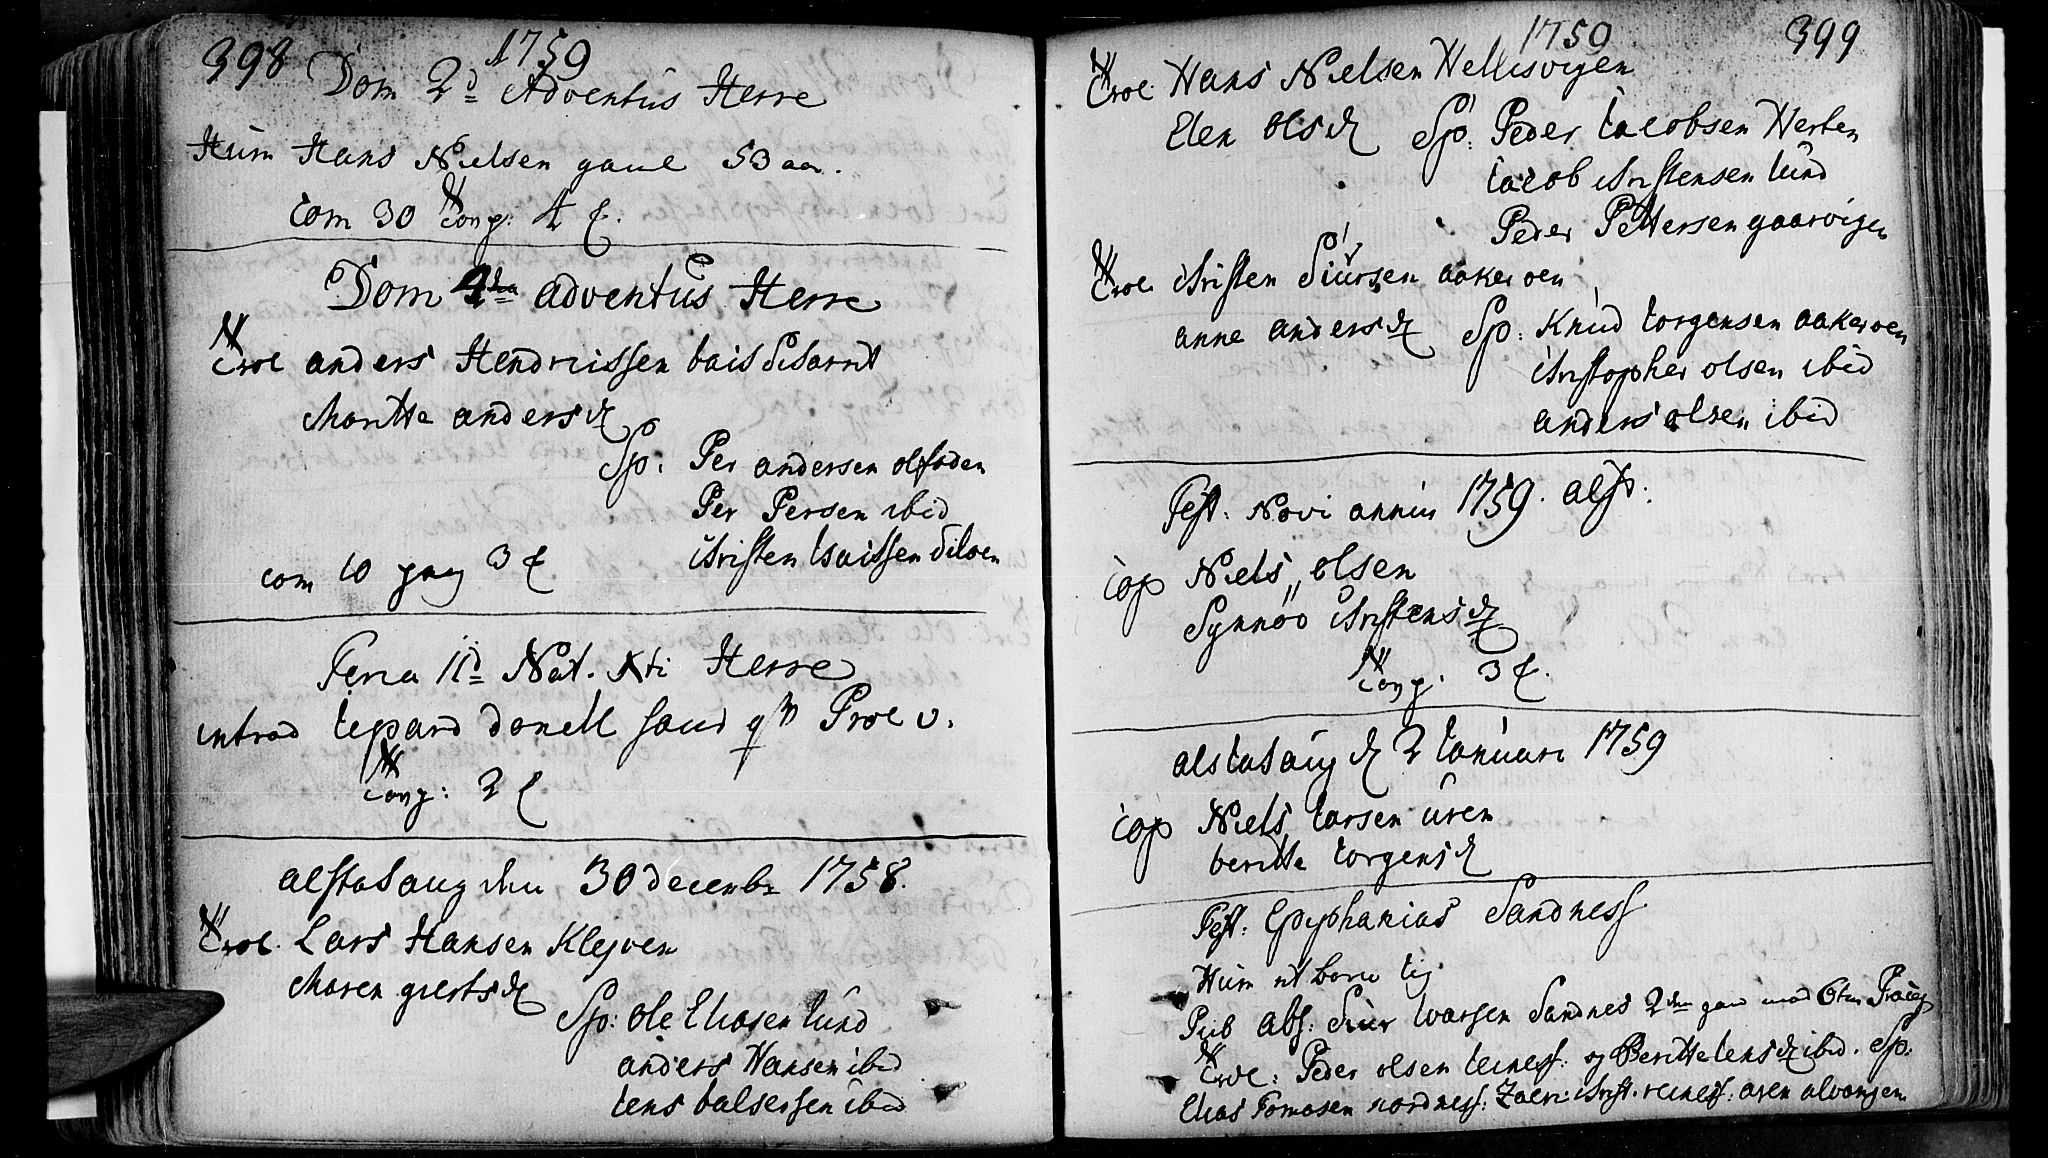 398
1759
Dom 2d Adventus Herre
Hum Hans Nielsen gaul 53 aar.
Com 30 Cong: 4 f.
Dom 4ta adventus Herre
Trol anders Hendricssen
Maritta andersd
Sp: Per andersen olfoden
Per Persen ibid
Christen Isaissen Siloen
com 10 3 f
Feria IId Nat. Xti Herre
introd Lepard donell qm Prol v.
Cong: 2 f
alstahaug den 30 decembr 1758.
Trol. Lars Hansen Klejven
Maren giertsd
Sp: Ole Eliasen lund
anders Hansen ibid
Iens balsersen ibid
1759
399
Trol. Hans Nielsen Hellesvigen
Elen Olsd Sp: Peder Iacobsen Herten
Iacob Christensen lund
Peder Pettersen gaasvigen
Trol. Christen Siursen aakeroen
anne andersd Sp: Knud Iorgensen aakeroen
Christopher olsen ibid
anders olsen ibid
Fest: Novi anni 1759. alst:
Cop Niels olsen
Synnøv Christensd
Cong: 3 f.
alstahaug d 2 Ianuari 1759
Cop Niels Larsen uren
beritta Iorgensd
Fest: Epiphanias Sandness
Hum
Pub abs: Siur Ivarsen Sandnes 2den gang
Trol: Peder olsen og Beritte Iensd ibid. Sp:
Elias Tomasen nordness: Zacri: Christ. aren alvangen